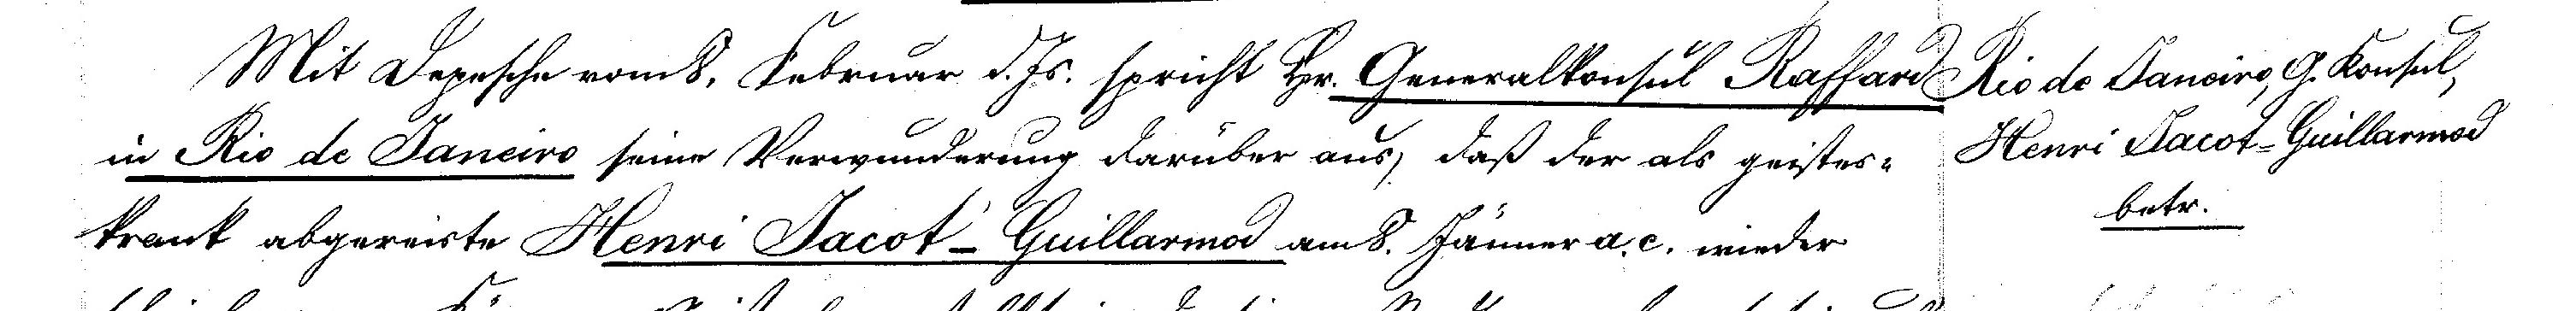 Mit Depesche vom 8. Februar d. Js. spricht Hr. Generalkonsul Raffard
in Rio de Janeiro seine Verwunderung darüber aus, daß der als geistes=
krank abgereiste Henri Jacot-Guillarmod am 8. Jänner a. c. wieder
Rio de Janeiro, G. Konsul,
Henri Jacot=Guillarmod
betr.